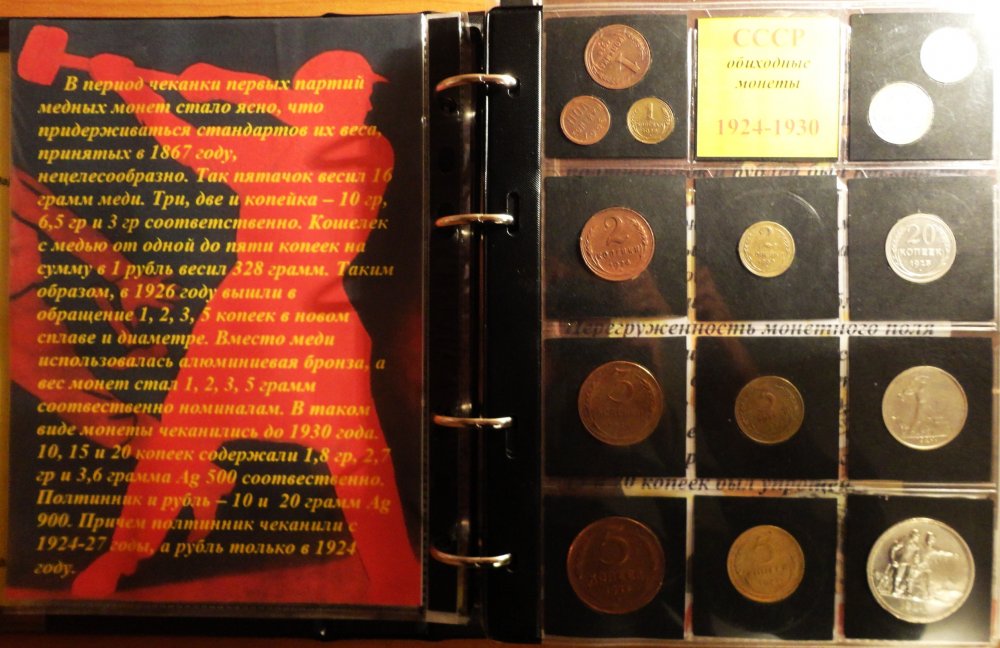 В период чеканки первых партий
медных монет стало ясно, что
придерживаться стандартов их веса,
принятых в 1867 году,
нецелесообразно. Так пятачок весил 16
грамм меди. Три, две и копейка – 10 гр,
6,5 гр и 3 гр соответственно. Кошелек
с медью от одной до пяти копеек на
сумму в 1 рубль весил 328 грамм. Таким
образом, в 1926 году вышли в
обращение 1, 2, 3, 5 копеек в новом
сплаве и диаметре. Вместо меди
использовалась алюминиевая бронза, а
вес монет стал 1, 2, 3, 5 грамм
соотвественно номиналам. В таком
виде монеты чеканились до 1930 года.
10, 15 и 20 копеек содержали 1,8 гр, 2,7
гр и 3,6 грамма Ag 500 соотвественно.
Полтинник и рубль – 10 и 20 грамм Ag
900. Причем полтинник чеканили с
1924-27 годы, а рубль только в 1924
году.
СССР
обиходные
монеты
1924-1930
1
1
2
2
20
КОПЕЕК
Перегруженность монетного поля
3
3
копеек был упрощен.
5
5